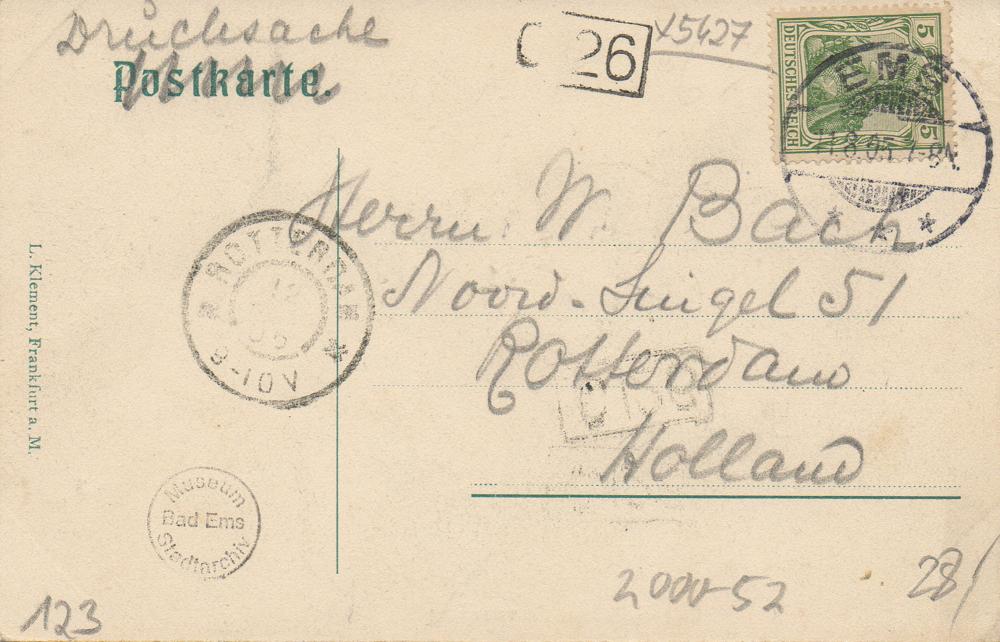 Drucksache
Postkarte.
26
X5427
5
DEUTSCHES REICH
5
EMS
11.8.05.7-8N.
Herrn W. Bach
Noord-Singel 51
Rotterdam
Holland
ROTTERDAM
12
05
8-10V
L. Klement, Frankfurt a. M.
Museum
Bad Ems
Stadtarchiv
123
2000-52
28/